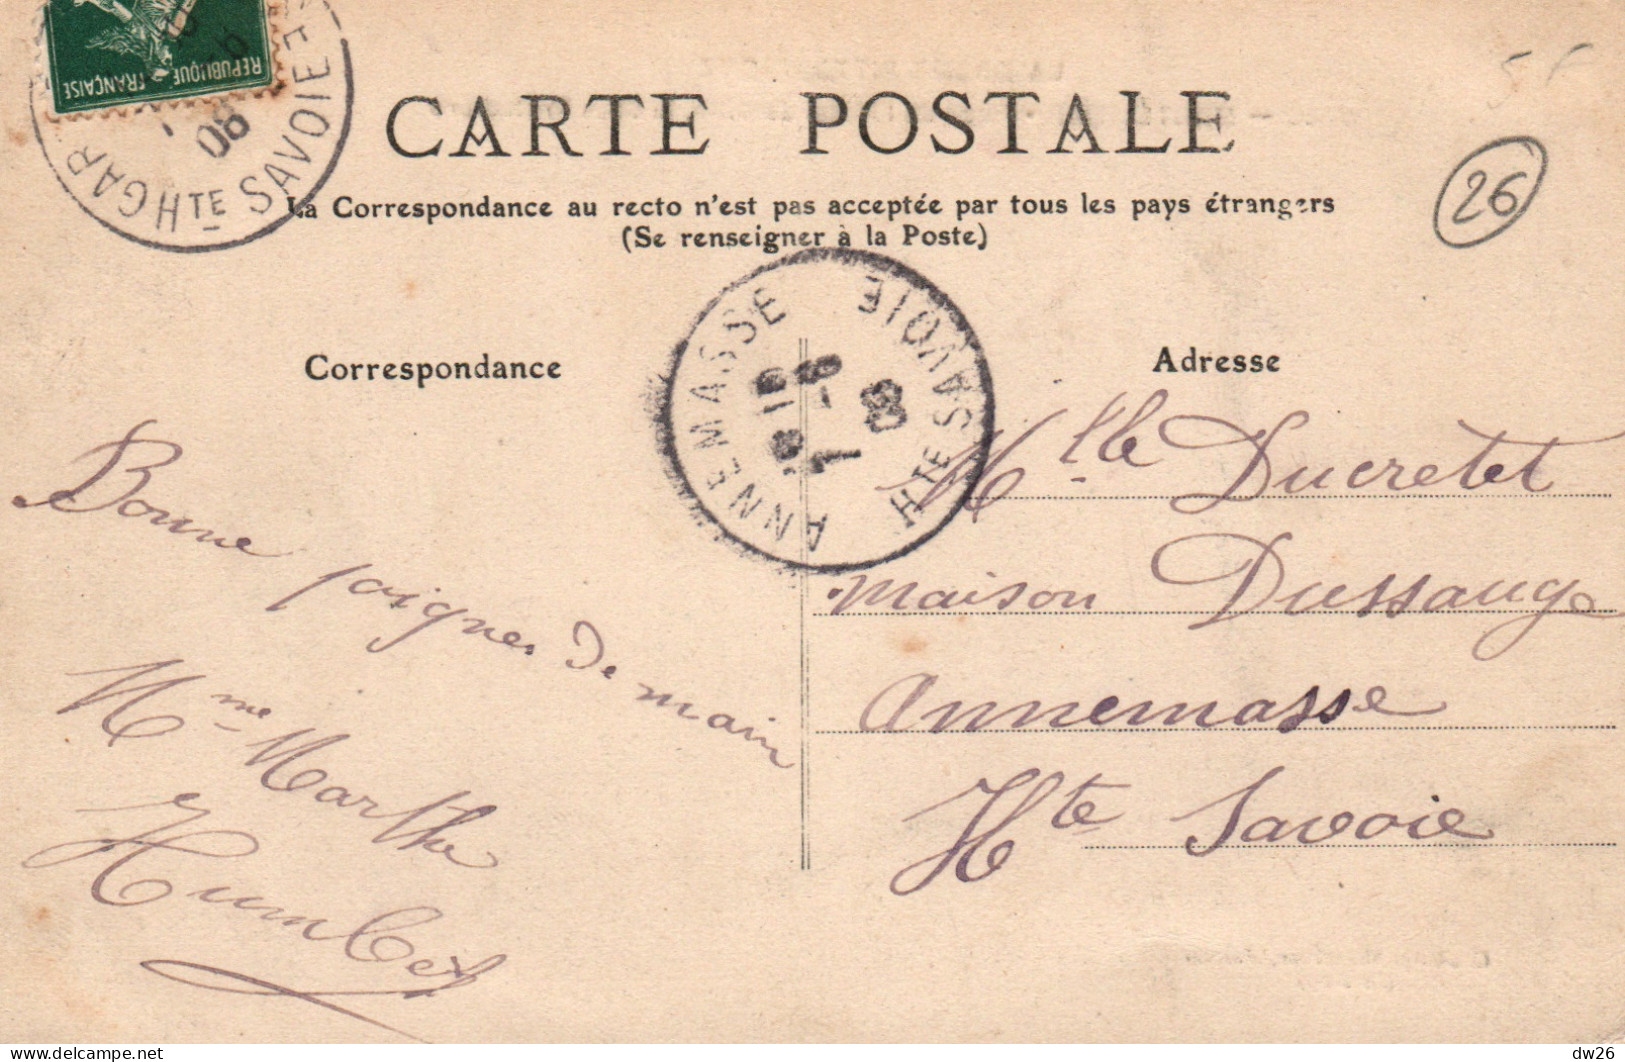 RÉPUBLIQUE FRANÇAISE
GAR
HTE SAVOIE
08
CARTE POSTALE
La Correspondance au recto n'est pas acceptée par tous les pays étrangers
(Se renseigner à la Poste)
26
ANNEMASSE HTE SAVOIE
8 - 1
08
Correspondance
Bonne poignée de main
Mme Marthe
Humbert
Adresse
Mlle Ducretet
maison Dussauge
Annemasse
Hte Savoie
delcampe.net
dw26